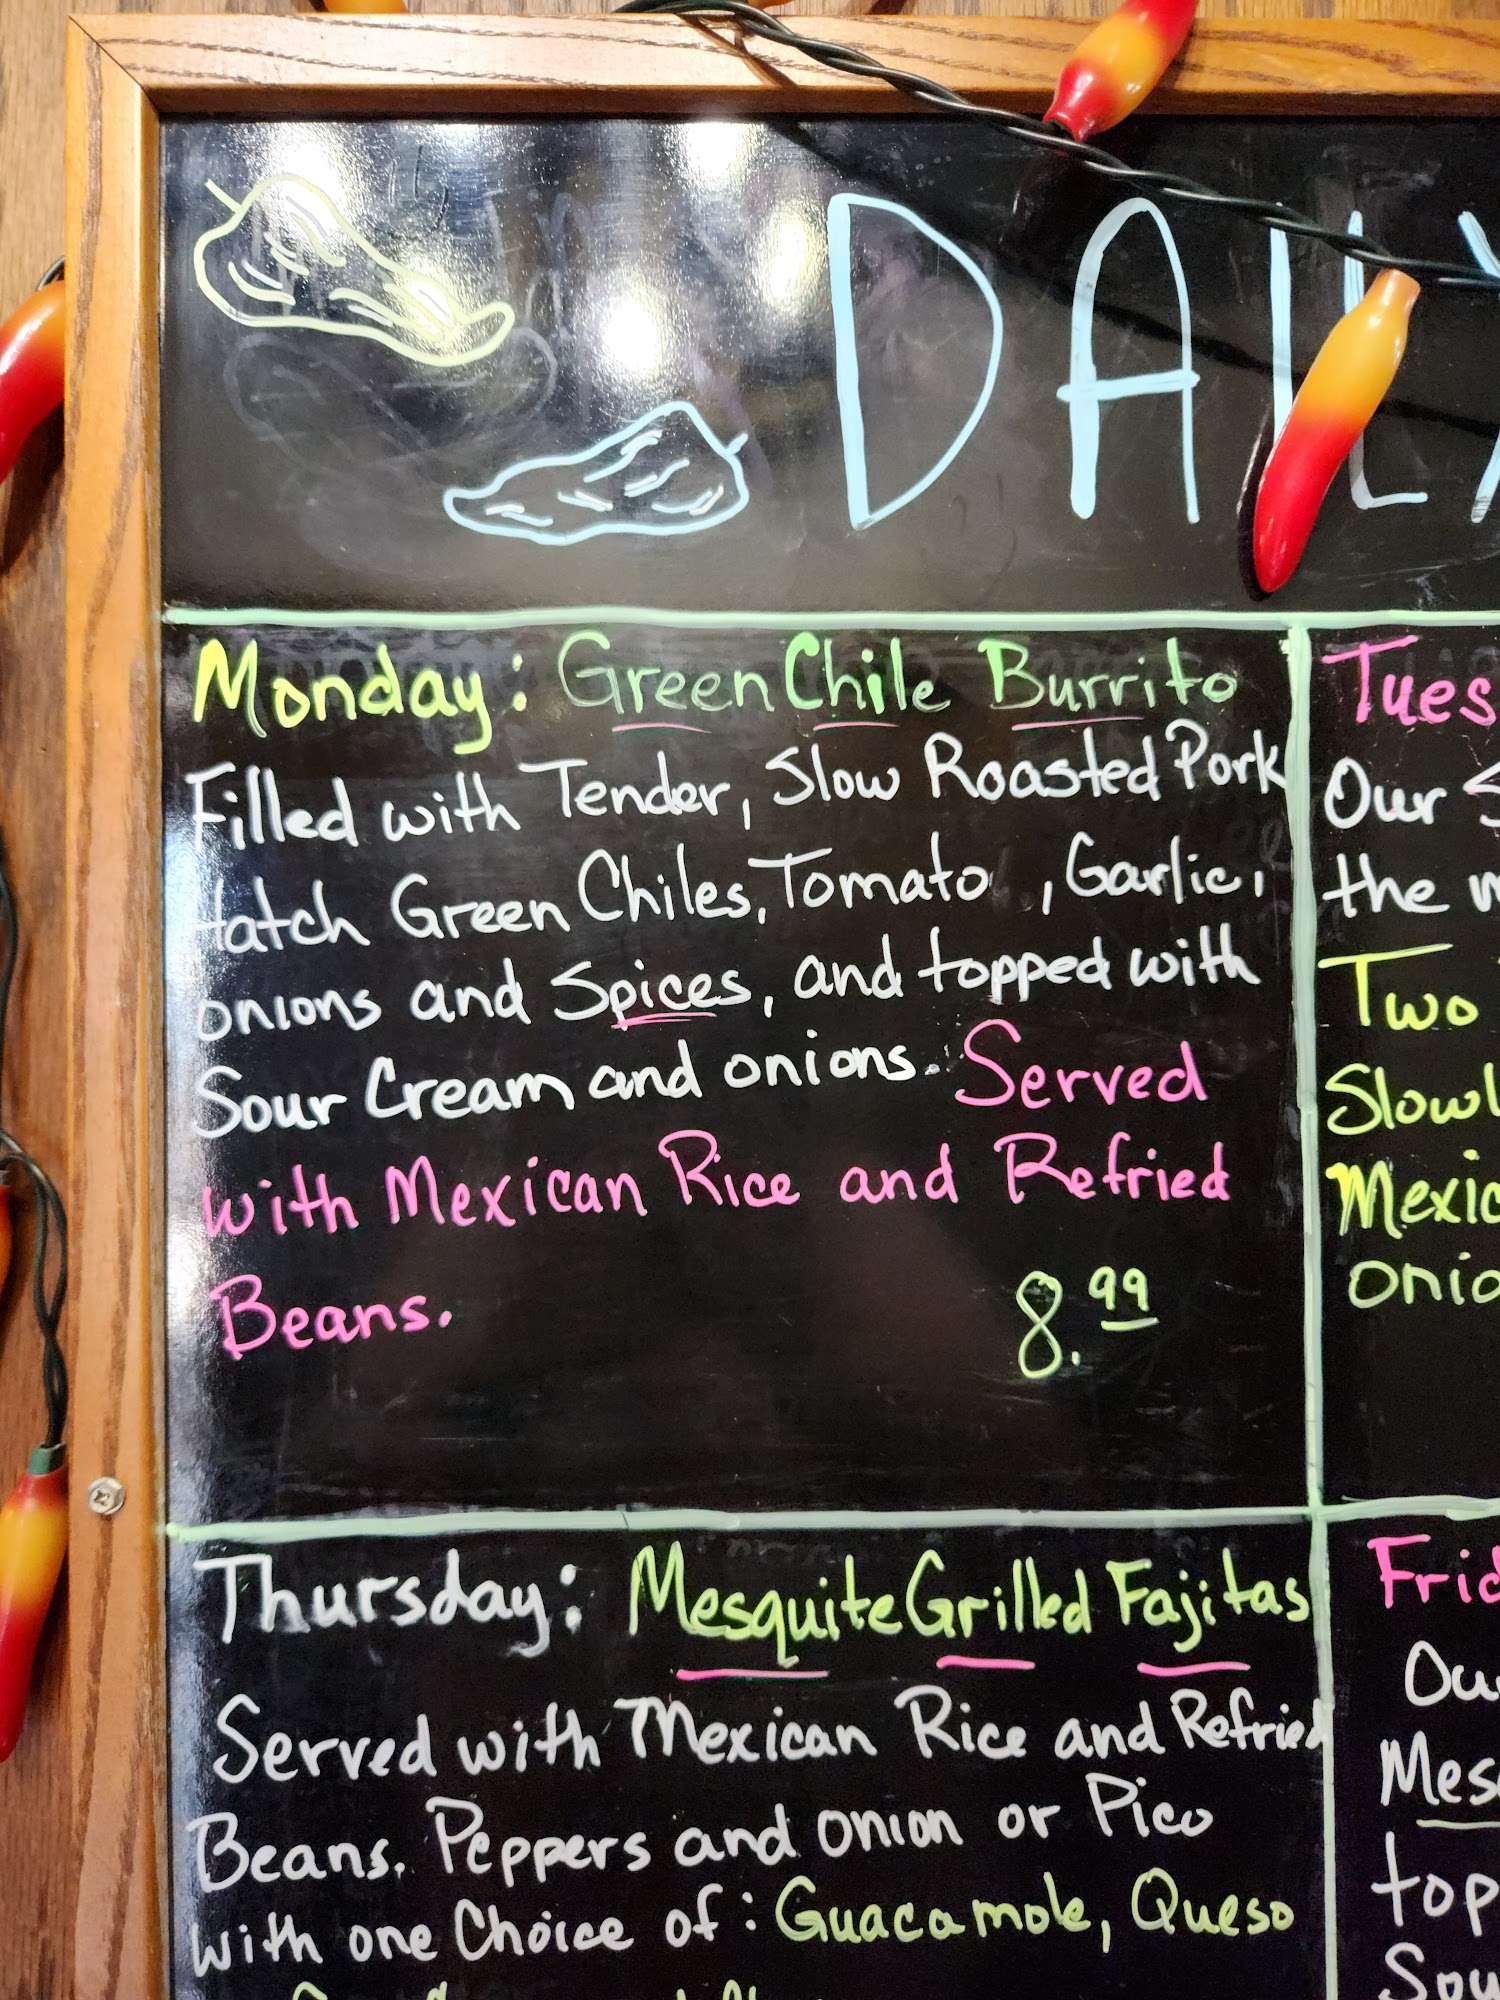 DAILY
Monday: Green Chile Burrito
Filled with Tender, Slow Roasted Pork
Hatch Green Chiles, Tomato , Garlic,
onions and Spices, and topped with
Sour Cream and onions. Served
with Mexican Rice and Refried
Beans. 8.99
Thursday: Mesquite Grilled Fajitas
Served with Mexican Rice and Refried
Beans. Peppers and onion or Pico
with one Choice of: Guacamole, Queso
Tues
Our S
the m
Two
Slowl
Mexic
onio
Frid
Our
Mes
top
Sou